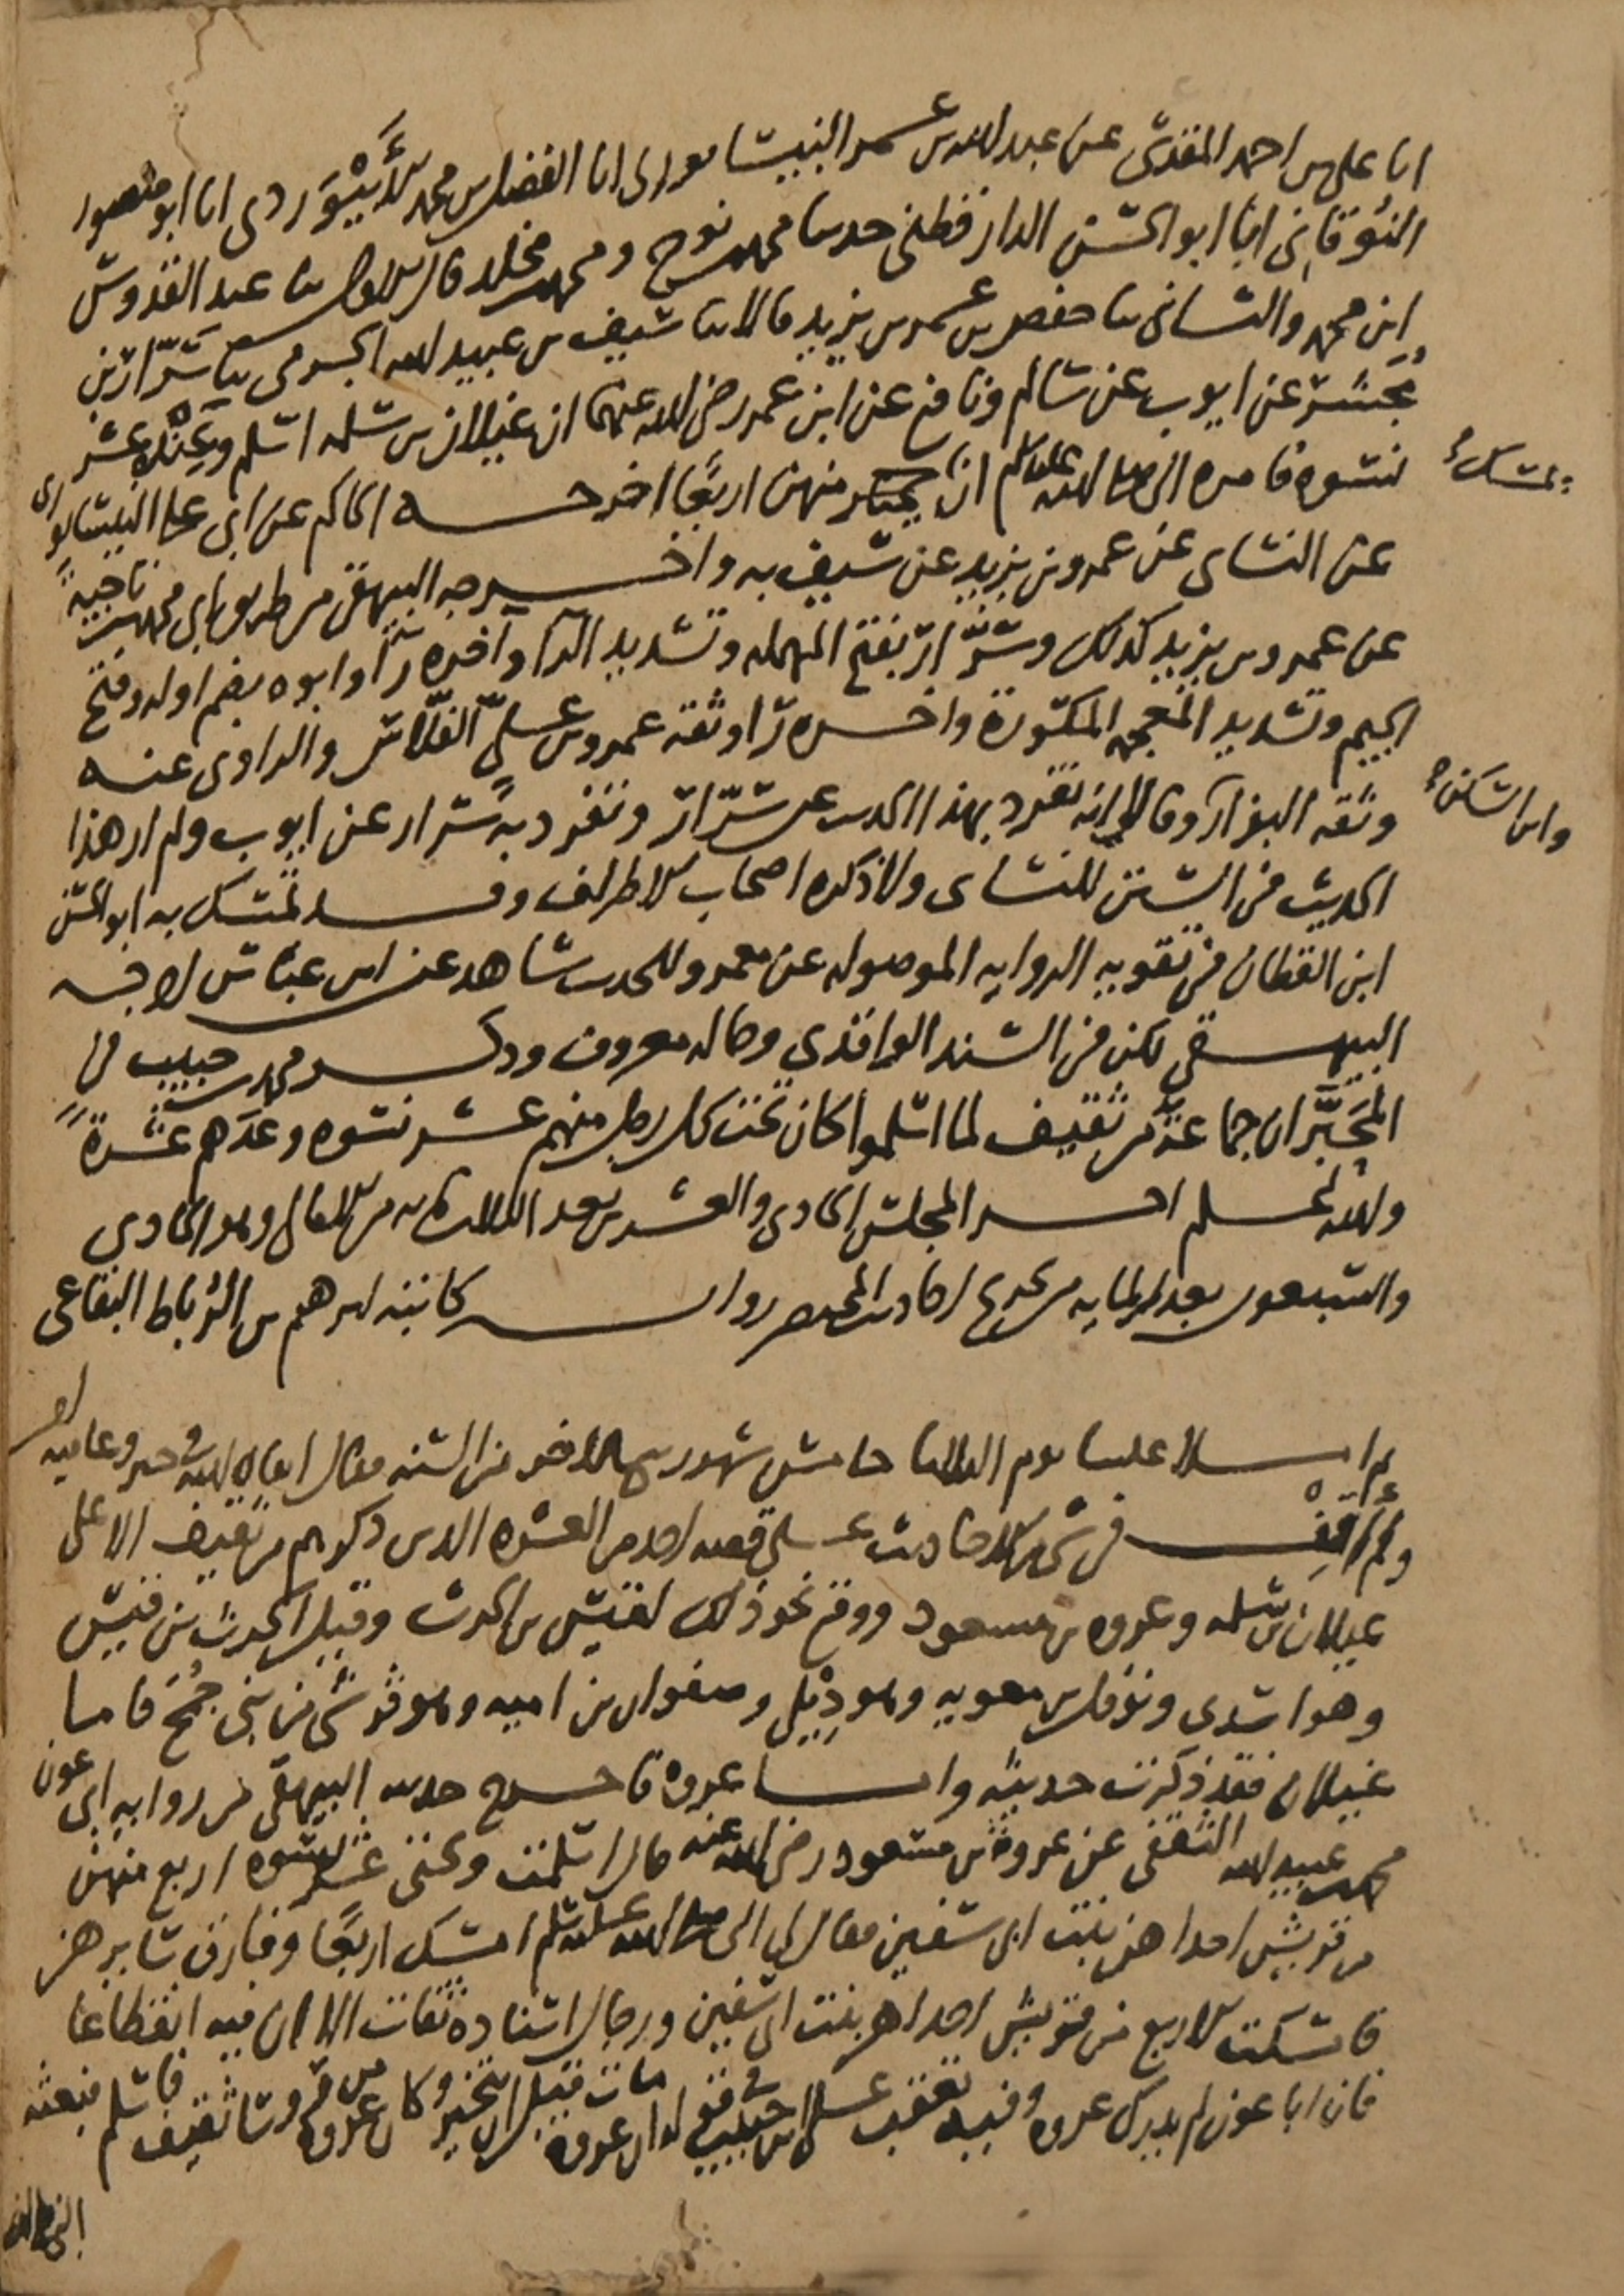 انا على بن احمد المقدسى عن عبد الله بن عمر النيسابورى انا الفضل بن محمد الأَبِيْوَردى انا ابو منصور
النُوقانى انا ابو الحسن الدارقطنى حدثنا محمد بن نوح ومحمد بن مخلد قال الاول ثنا عبد القدوس
ابن محمد والثانى ثنا حفص بن عمر بن يزيد قالا ثنا سيف بن عبيد الله الجرمى ثنا سَرّار بن
مُجَشّر عن ايوب عن سالم ونافع عن ابن عمر رضى الله عنهما ان غيلان بن سلمه اسلم وعِنْده عشر
نسوه فامره النبى صلى الله عليه وسلم ان منهن اربعًا اخرجه الحاكم عن ابى على النيسابورى
يمسك
عن النساى عن عمرو بن يزيد عن سيف به واخرجه البيهقى من طريق ابى محمد بن ناجيةً
عن عمرو بن يزيد كذلك وسَرّار بفتح المهمله وتشديد الرآ وآخره رآ وابوه بضم اوله وفتح
الجيم وتشديد المعجمه المكسورة واخره رآ وثقه عمرو بن علىّ الفلّاس والراوى عنه
وثقه البزار وقال انه تفرد بهذا الحديث عن سَرّار وتفرد به سَرار عن ايوب ولم ار هذا
وابن السَكَن
الحديث فى السنن للنساى ولا ذكره اصحاب الاطراف وقد تمسك به ابو الحسن
ابن القطان فى تقويه الروايه الموصوله عن معمر وللحديث شاهد عن ابن عباس اخرجه
البيهقى لكن فى السند الواقدى وحاله معروف وذكر محمد بن حبيب فى
المُحَبَّر ان جماعةً من ثقيف لما اسلموا كان تحت كل رجل منهم عشر نسوه وعَدّهم عشرةً
والله اعلم اخر المجلس الحادى والعشرين بعد الثلثمايه من الامالى وهو الحادي
والسبعون بعد المايه من تخريج احاديث المختصر روايه كاتبه ابرهيم بن الرُباط البقاعى
ثم املا علينا يوم الثلثا خامس شهر ربيع الاخر من السنه فقال ابقاه الله فى خير وعافيه
ولم اَقِفْ فى شى من الاحاديث على قصه احد من العشره الذين ذكرهم من ثقيف الا على
غيلان بن سلمه وعروه بن مسعود ووقع نحو ذلك لقيس بن الحرث وقيل الحرث بن قيس
وهو اسدى ونوفل بن معويه وهو دِيْلى وصفوان بن اميه وهو قرشى من بنى جُمَح فاما
غيلان فقد ذكرت حديثه واما عروه فاخرج حديثه البيهقى من روايه ابى عون
محمد بن عبيد الله الثقفى عن عروة بن مسعود رضى الله عنه قال اسلمت وتحتى عشر نسوه اربع منهن
من قريش احداهن بنت ابى سفين فقال لى النبى صلى الله عليه وسلم امسك اربعًا وفارق سايرهن
فامسكت الاربع من قريش احداهن بنت ابى سفين ورجال اسناده ثقات الا ان فيه انقطاعا
فان ابا عون لم يدرك عروه وفيه تعقب على ابن حبيب فى قوله ان عروة مات قبل ان يتخير وكان عروة من روسا ثقيف فاسلم فبعثه